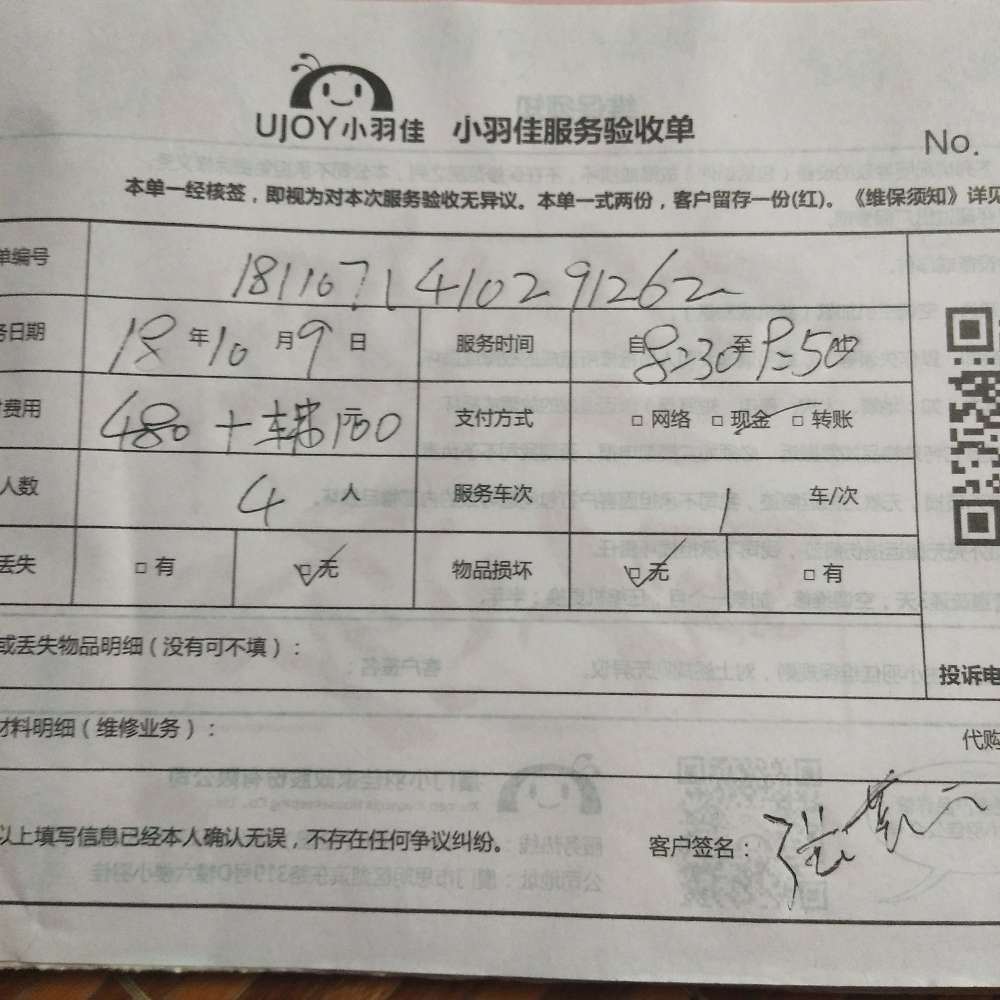 UJOY小羽佳 小羽佳服务验收单
No.
本单一经核签，即视为对本次服务验收无异议。本单一式两份，客户留存一份(红)。《维保须知》详见
单编号 181167141029 1262
务日期 18 年 10 月 9 日 服务时间 自 8:30 至 9:50 止
费用 480 + 车辆100 支付方式 □ 网络 □ 现金 □ 转账
人数 4 人 服务车次 1 车/次
丢失 □ 有 □ 无 物品损坏 □ 无 □ 有
或丢失物品明细（没有可不填）：
投诉电
材料明细（维修业务）：
代购
以上填写信息已经本人确认无误，不存在任何争议纠纷。 客户签名：